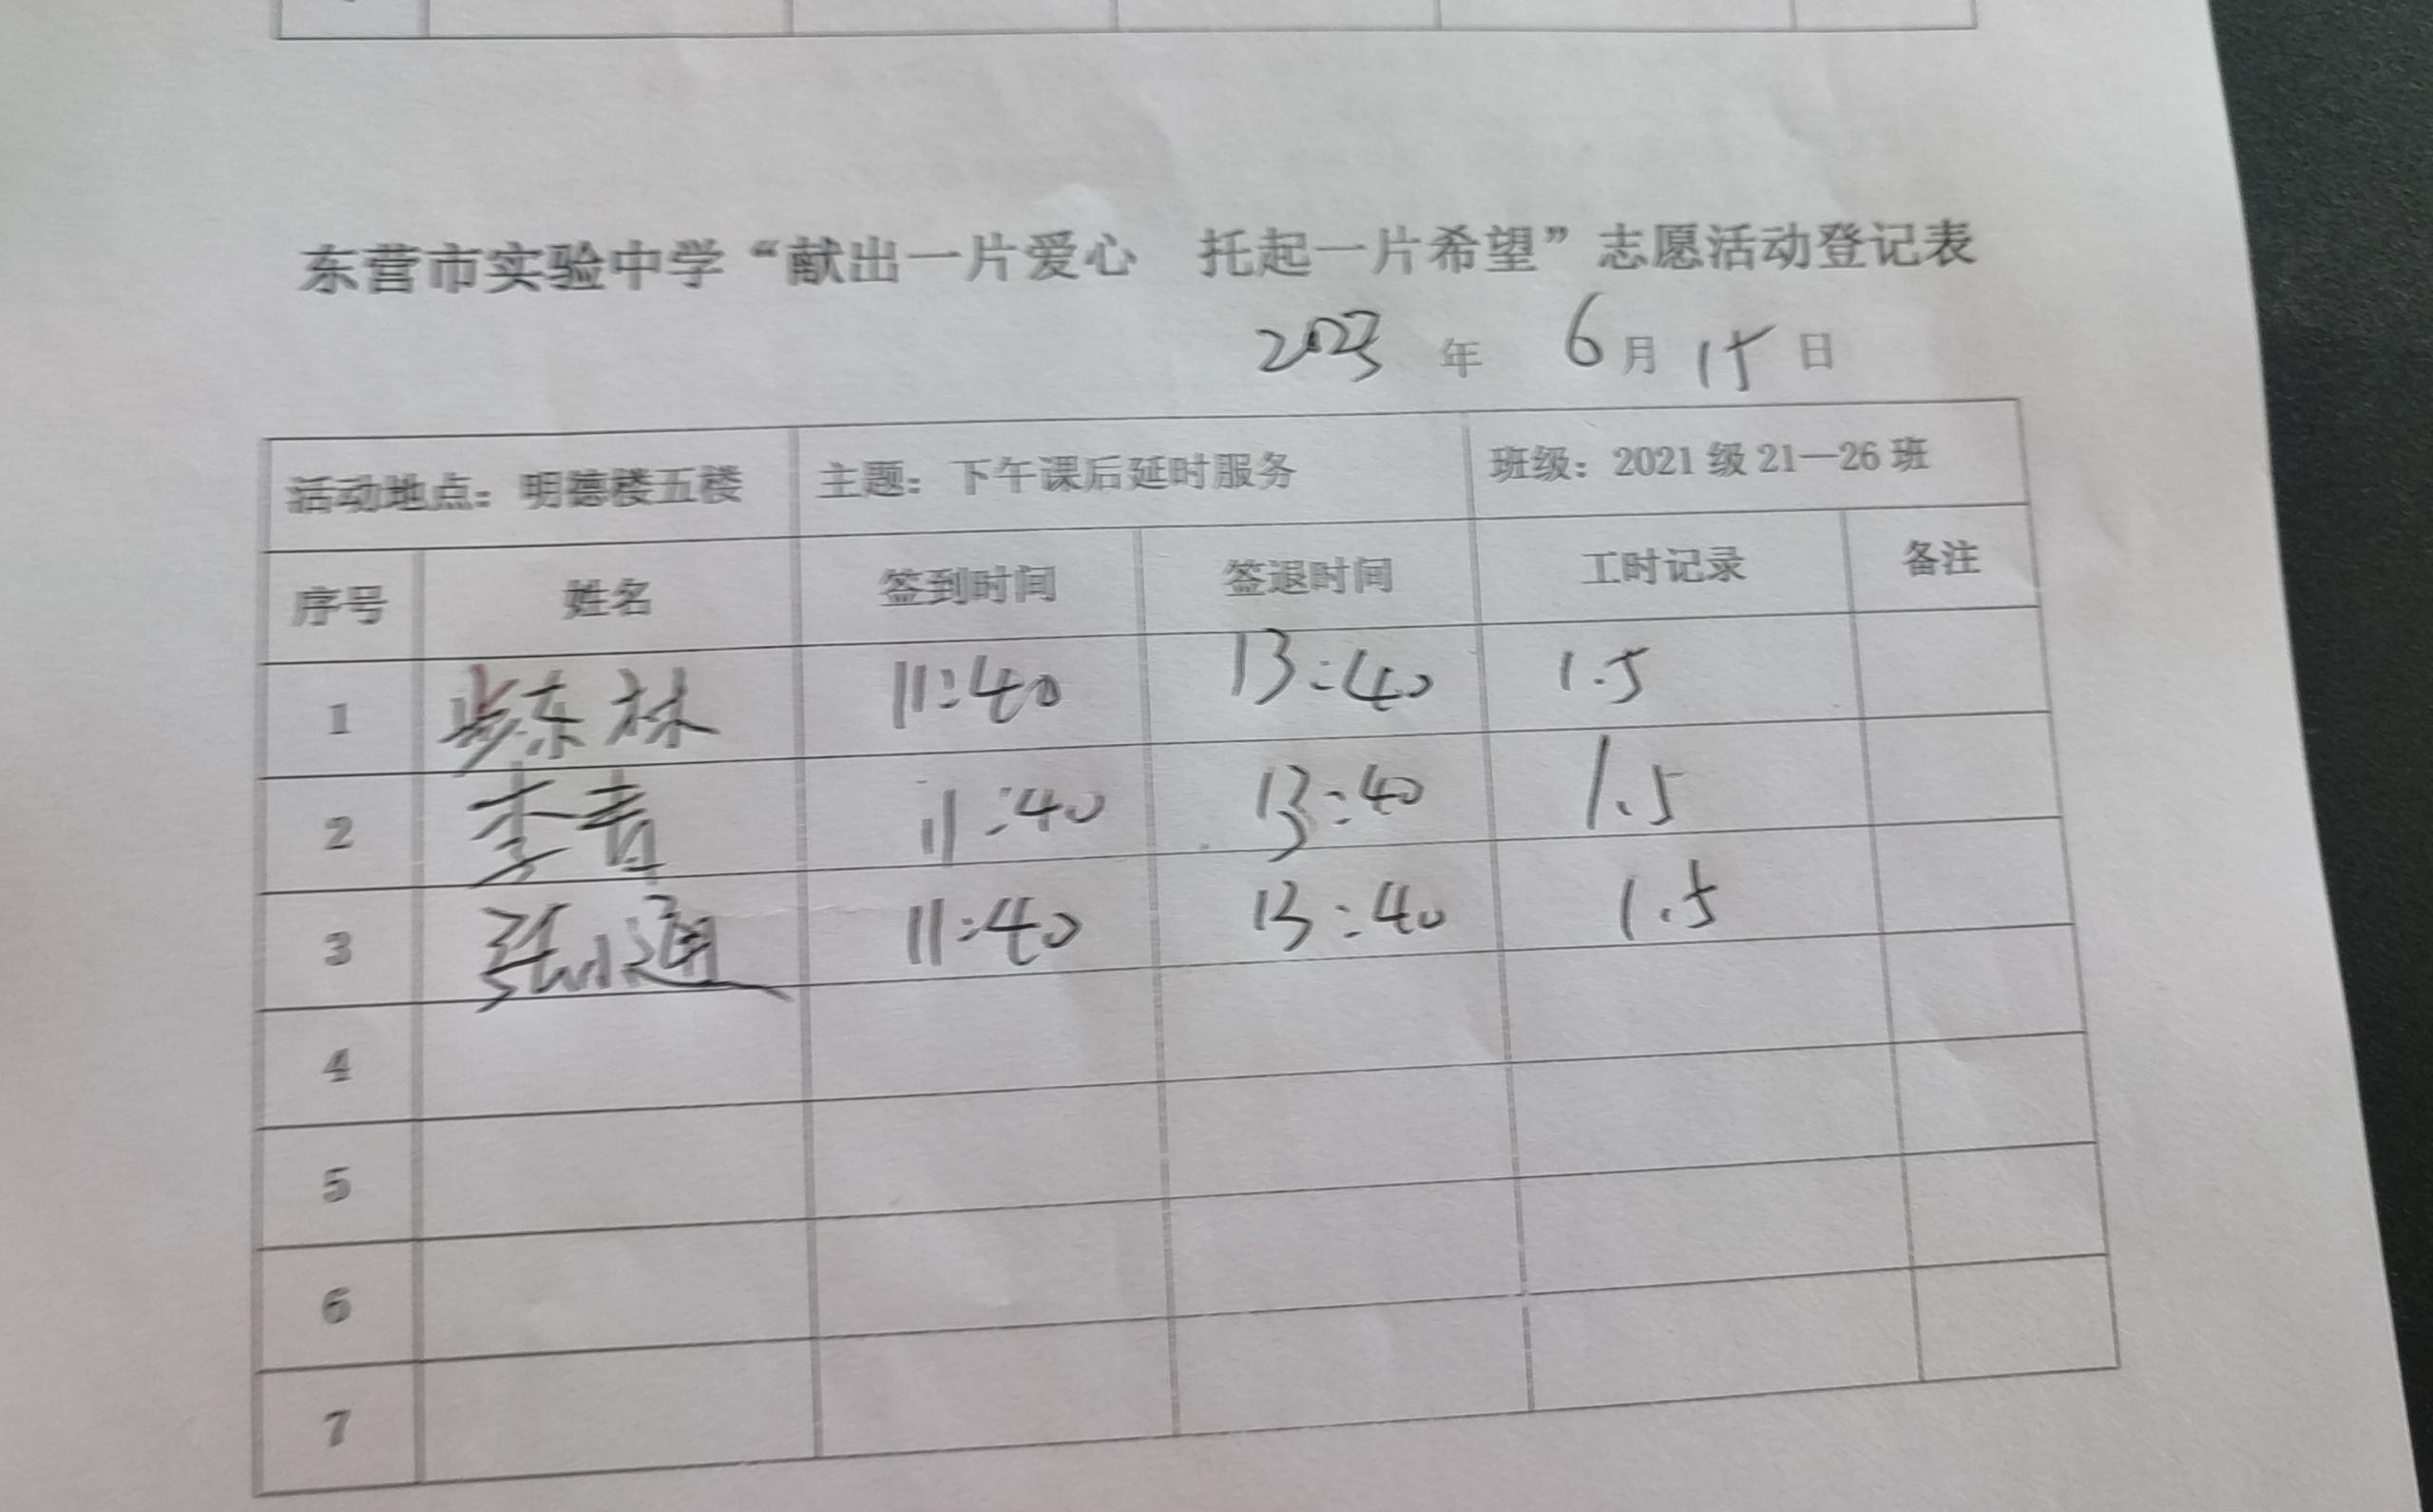 东营市实验中学“献出一片爱心 托起一片希望”志愿活动登记表
2023 年 6 月 15 日
活动地点：明德楼五楼 主题：下午课后延时服务 班级：2021级21—26班
序号 姓名 签到时间 签退时间 工时记录 备注
1 步东林 11:40 13:40 1.5
2 李青 11:40 13:40 1.5
3 张小通 11:40 13:40 1.5
4
5
6
7